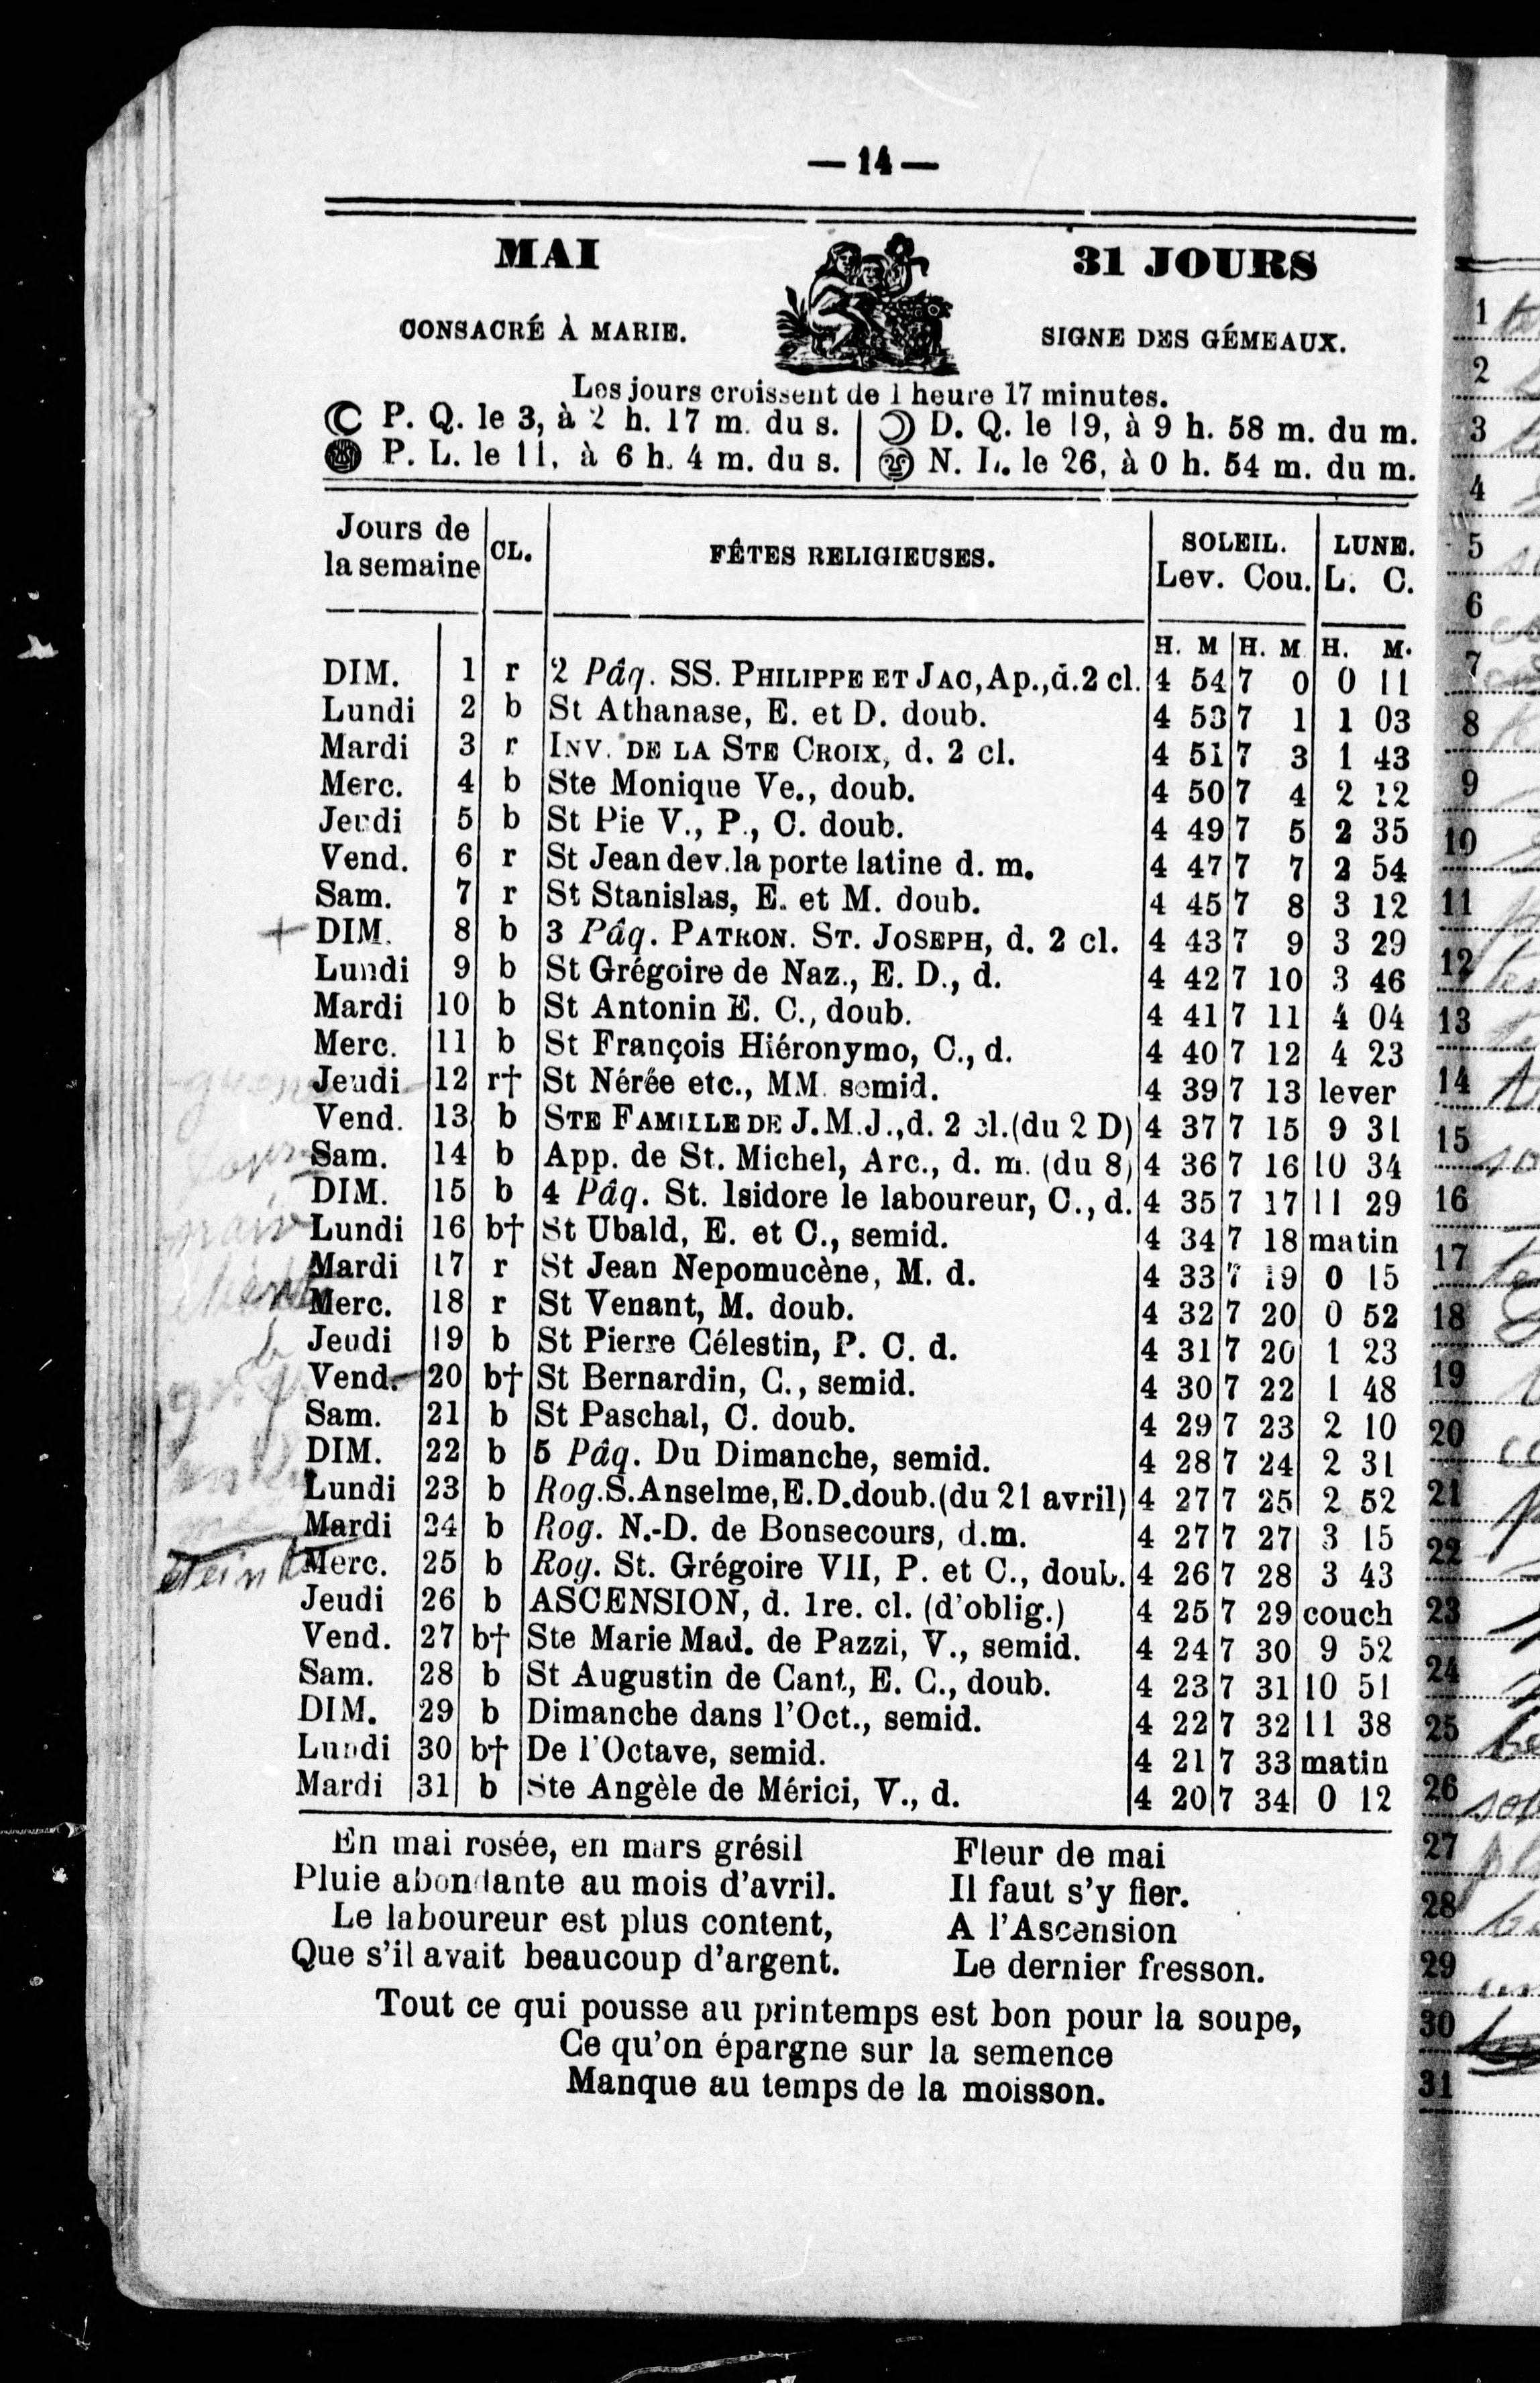 — 14 —
MAI
31 JOURS
CONSACRÉ À MARIE.
SIGNE DES GÉMEAUX.
Les jours croissent de 1 heure 17 minutes.
P. Q. le 3, à 2 h. 17 m. du s. | D. Q. le 19, à 9 h. 58 m. du m.
P. L. le 11, à 6 h. 4 m. du s. | N. L. le 26, à 0 h. 54 m. du m.
Jours de la semaine | CL. | FÊTES RELIGIEUSES. | SOLEIL. Lev. Cou. | LUNE. L. C.
H. M | H. M | H. M.
DIM. 1 r 2 Pâq. SS. PHILIPPE ET JAC, Ap., d. 2 cl. 4 54 7 0 0 11
Lundi 2 b St Athanase, E. et D. doub. 4 53 7 1 1 03
Mardi 3 r INV. DE LA STE CROIX, d. 2 cl. 4 51 7 3 1 43
Merc. 4 b Ste Monique Ve., doub. 4 50 7 4 2 12
Jeudi 5 b St Pie V., P., C. doub. 4 49 7 5 2 35
Vend. 6 r St Jean dev. la porte latine d. m. 4 47 7 7 2 54
Sam. 7 r St Stanislas, E. et M. doub. 4 45 7 8 3 12
+ DIM. 8 b 3 Pâq. PATRON. ST. JOSEPH, d. 2 cl. 4 43 7 9 3 29
Lundi 9 b St Grégoire de Naz., E. D., d. 4 42 7 10 3 46
Mardi 10 b St Antonin E. C., doub. 4 41 7 11 4 04
Merc. 11 b St François Hiéronymo, C., d. 4 40 7 12 4 23
Jeudi 12 r† St Nérée etc., MM. semid. 4 39 7 13 lever
Vend. 13 b STE FAMILLE DE J. M. J., d. 2 cl. (du 2 D) 4 37 7 15 9 31
Sam. 14 b App. de St. Michel, Arc., d. m. (du 8) 4 36 7 16 10 34
DIM. 15 b 4 Pâq. St. Isidore le laboureur, C., d. 4 35 7 17 11 29
Lundi 16 b† St Ubald, E. et C., semid. 4 34 7 18 matin
Mardi 17 r St Jean Nepomucène, M. d. 4 33 7 19 0 15
Merc. 18 r St Venant, M. doub. 4 32 7 20 0 52
Jeudi 19 b St Pierre Célestin, P. C. d. 4 31 7 20 1 23
Vend. 20 b† St Bernardin, C., semid. 4 30 7 22 1 48
Sam. 21 b St Paschal, C. doub. 4 29 7 23 2 10
DIM. 22 b 5 Pâq. Du Dimanche, semid. 4 28 7 24 2 31
Lundi 23 b Rog. S. Anselme, E. D. doub. (du 21 avril) 4 27 7 25 2 52
Mardi 24 b Rog. N.-D. de Bonsecours, d.m. 4 27 7 27 3 15
Merc. 25 b Rog. St. Grégoire VII, P. et C., doub. 4 26 7 28 3 43
Jeudi 26 b ASCENSION, d. 1re. cl. (d'oblig.) 4 25 7 29 couch
Vend. 27 b† Ste Marie Mad. de Pazzi, V., semid. 4 24 7 30 9 52
Sam. 28 b St Augustin de Cant, E. C., doub. 4 23 7 31 10 51
DIM. 29 b Dimanche dans l'Oct., semid. 4 22 7 32 11 38
Lundi 30 b† De l'Octave, semid. 4 21 7 33 matin
Mardi 31 b Ste Angèle de Mérici, V., d. 4 20 7 34 0 12
En mai rosée, en mars grésil
Pluie abondante au mois d'avril.
Le laboureur est plus content,
Que s'il avait beaucoup d'argent.
Fleur de mai
Il faut s'y fier.
A l'Ascension
Le dernier fresson.
Tout ce qui pousse au printemps est bon pour la soupe,
Ce qu'on épargne sur la semence
Manque au temps de la moisson.
1
2
3
4
5
6
7
8
9
10
11
12
13
14
15
16
17
18
19
20
21
22
23
24
25
26
27
28
29
30
31